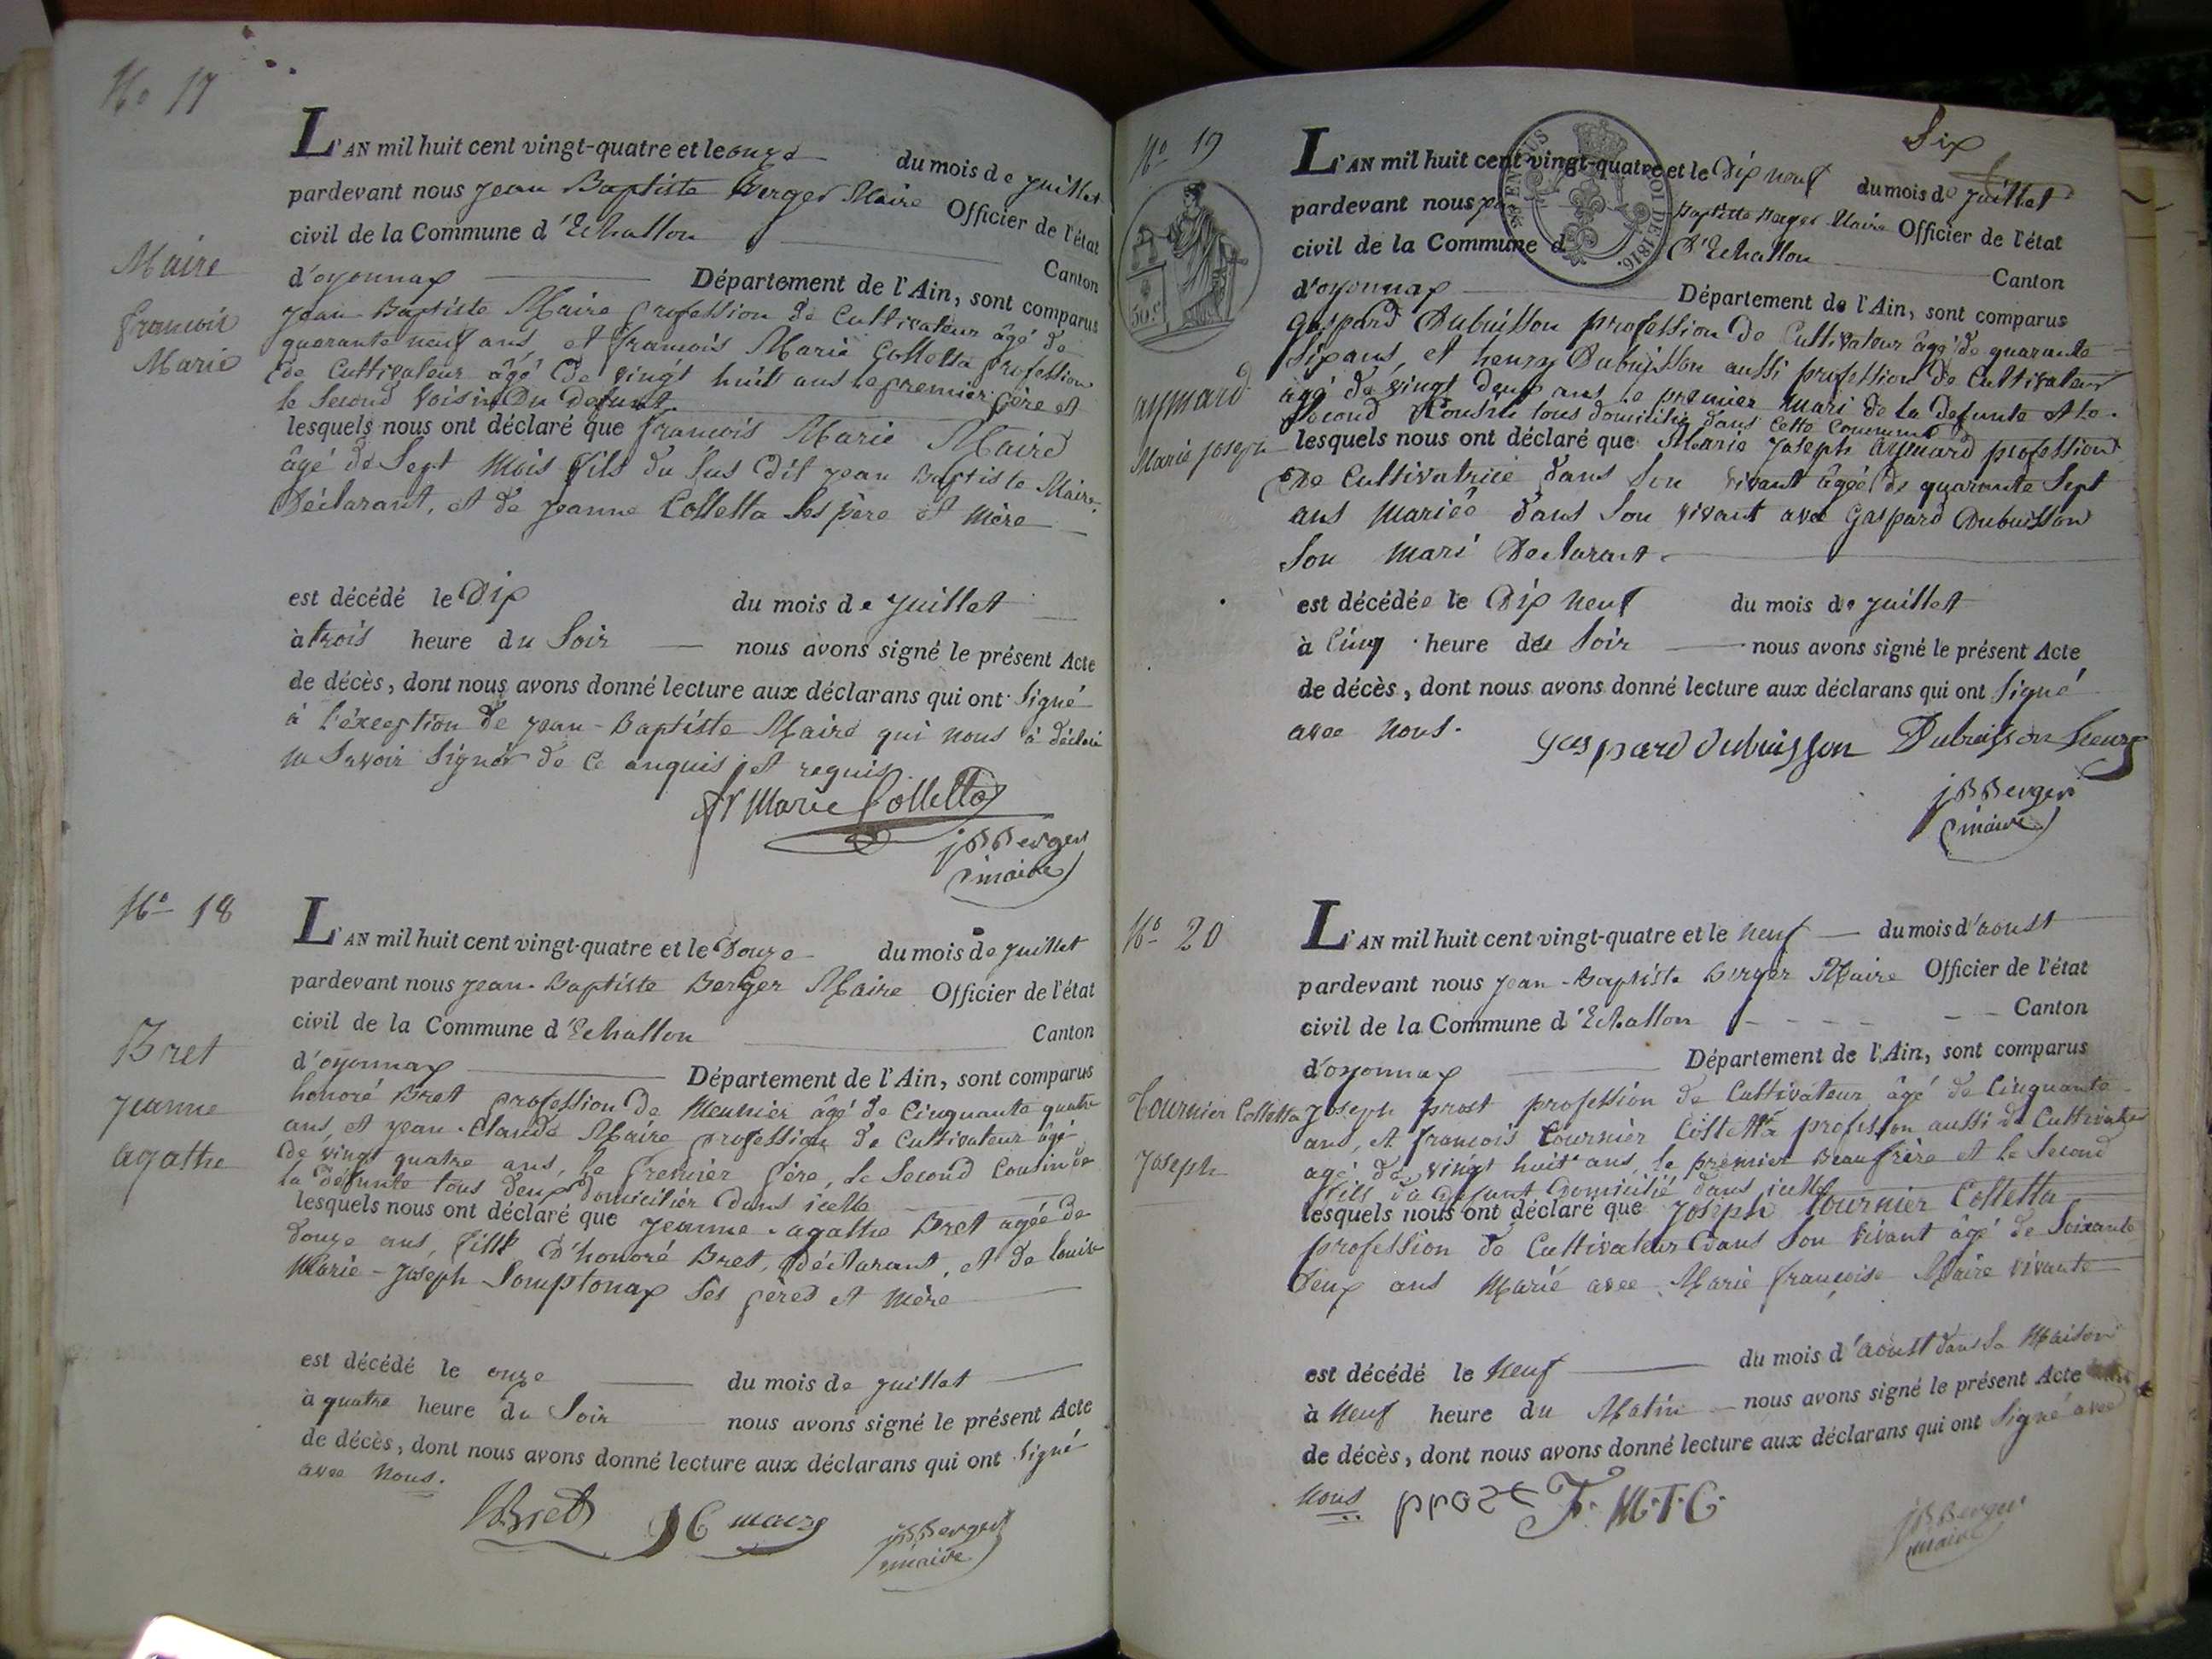 No 17
L'AN mil huit cent vingt-quatre et le onze du mois de juillet
pardevant nous jean Baptiste Berger Maire Officier de l'état
civil de la Commune d'Echallon Canton
d'oyonnax Département de l'Ain, sont comparus
Maire
francois
Marie
jean Baptiste Maire profession de Cultivateur âgé de
quarante neuf ans, et francois Marie Colletta profession
de Cultivateur âgé de vingt huit ans le premier père et
le Second Voisin Du Defunt
lesquels nous ont déclaré que francois Marie Maire
âgé de Sept Mois fils du Sus dit jean Baptiste Maire
Déclarant, et de jeanne Colletta Ses père et Mère
est décédé le Dix du mois de juillet
à trois heure du Soir nous avons signé le présent Acte
de décès, dont nous avons donné lecture aux déclarans qui ont Signé
à l'éxception de jean-Baptiste Maire qui nous à déclaré
ne Savoir Signer de Ce enquis et requis
fr Marie Colletta
jB Berger
maire
No 18
L'AN mil huit cent vingt-quatre et le Douze du mois de juillet
pardevant nous jean-Baptiste Berger Maire Officier de l'état
civil de la Commune d'Echallon Canton
d'oyonnax Département de l'Ain, sont comparus
Bret
jeanne
agathe
honoré Bret profession de Meunier âgé de Cinquante quatre
ans, et jean-Claude Maire profession de Cultivateur âgé
de vingt quatre ans, le premier père, le Second Cousin de
la défunte tous deux domicilier dans icelle
lesquels nous ont déclaré que jeanne-agathe Bret agée de
douze ans, fille d'honoré Bret, déclarant, et de louise
Marie-joseph Somptonax Ses pères et Mère
est décédé le onze du mois de juillet
à quatre heure du Soir nous avons signé le présent Acte
de décès, dont nous avons donné lecture aux déclarans qui ont Signé
avec nous.
hBret JC maire jB Berger
maire
Six
No 19
L'AN mil huit cent vingt-quatre et le Dix neuf du mois de juillet
pardevant nous Baptiste Berger Maire Officier de l'état
civil de la Commune d'Echallon Canton
d'oyonnax Département de l'Ain, sont comparus
LOI DE 1816.
50 c
aymard
Marie joseph
gaspard Dubuisson profession de Cultivateur âgé de quarante
Six ans, et henry Dubuisson aussi profession de Cultivateur
âgé de vingt deux ans le premier Mari de la Defunte et le
Second Cousin tous domicilié dans cette Commune
lesquels nous ont déclaré que Marie Joseph aymard profession
De Cultivatrice dans Son vivant âgée de quarante Sept
ans Mariée dans Son vivant avec gaspard Dubuisson
Son Mari Declarant
est décédée le Dix neuf du mois de juillet
à Cinq heure du Soir nous avons signé le présent Acte
de décès, dont nous avons donné lecture aux déclarans qui ont Signé
avec nous.
gaspard dubuisson Dubuisson henry
jB Berger
maire
No 20
L'AN mil huit cent vingt-quatre et le neuf du mois d'aoust
pardevant nous jean-Baptiste Berger Maire Officier de l'état
civil de la Commune d'Echallon Canton
d'oyonnax Département de l'Ain, sont comparus
Tournier Colletta
joseph
joseph prost profession de Cultivateur âgé de Cinquante
ans, et francois Tournier Colletta profession aussi de Cultivateur
agé de vingt huit ans, le premier Beaufrère et le Second
fils du defunt Domicilié dans icelle
lesquels nous ont déclaré que Joseph Tournier Colletta
profession de Cultivateur Dans Son vivant âgé de Soixante
Deux ans Marié avec Marie françoise Maire vivante
est décédé le Neuf du mois d'aoust dans Sa Maison
à Neuf heure du Matin nous avons signé le présent Acte
de décès, dont nous avons donné lecture aux déclarans qui ont Signé avec
nous
prost F. M.T.C.
jB Berger
maire